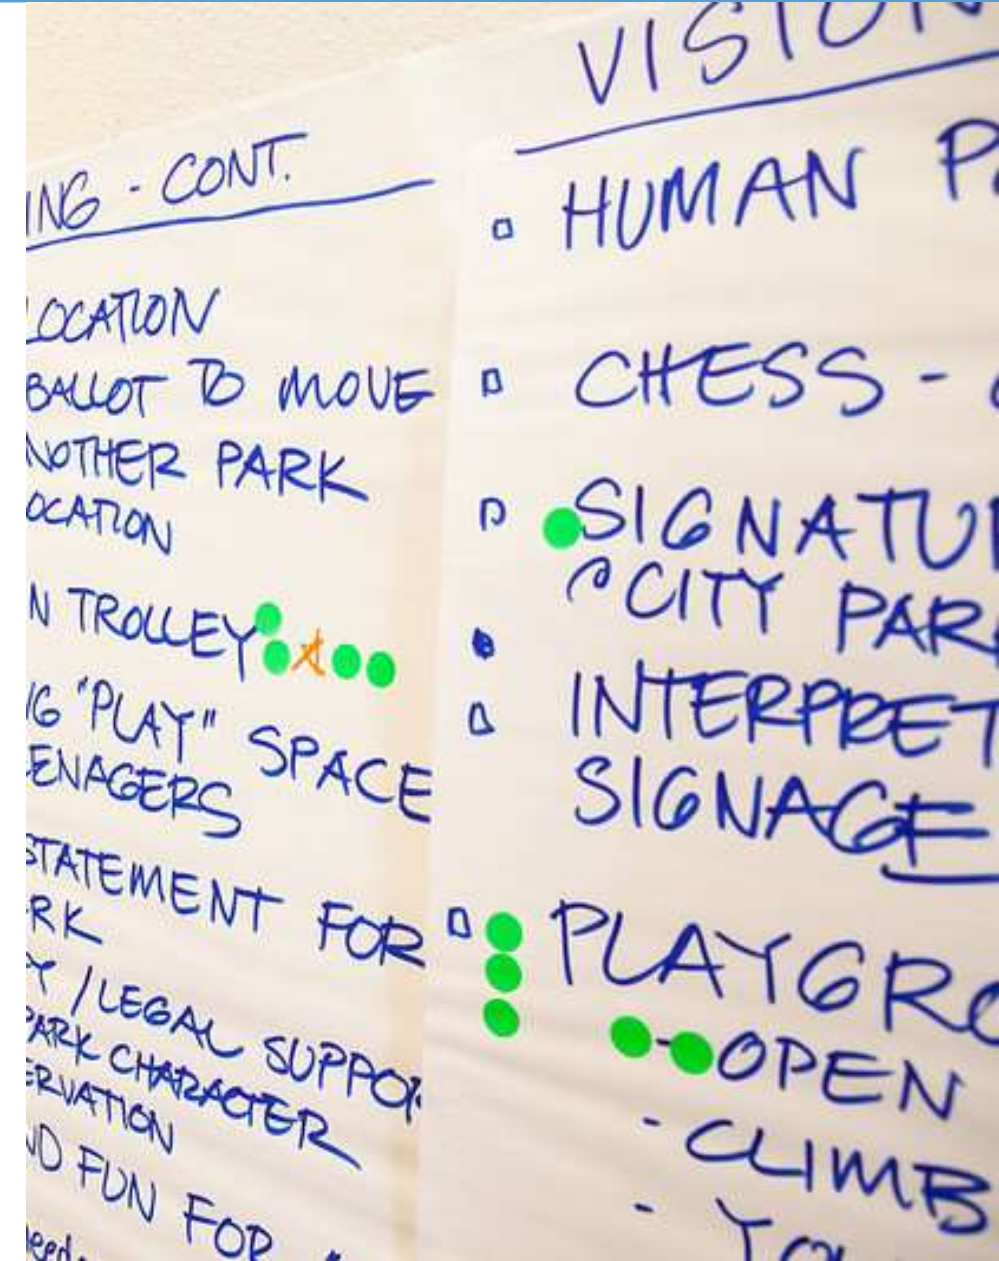 ING - CONT.
LOCATION
BALLOT TO MOVE
NOTHER PARK
OCATION
N TROLLEY
NG "PLAY" SPACE
ENAGERS
STATEMENT FOR
RK
Y / LEGAL SUPPOR
PARK CHARACTER
ERVATION
ND FUN FOR
need
VISION
HUMAN PA
CHESS -
SIGNATUR
CITY PAR
INTERPRET
SIGNAGE
PLAYGRO
- OPEN
- CLIMB
- YOU